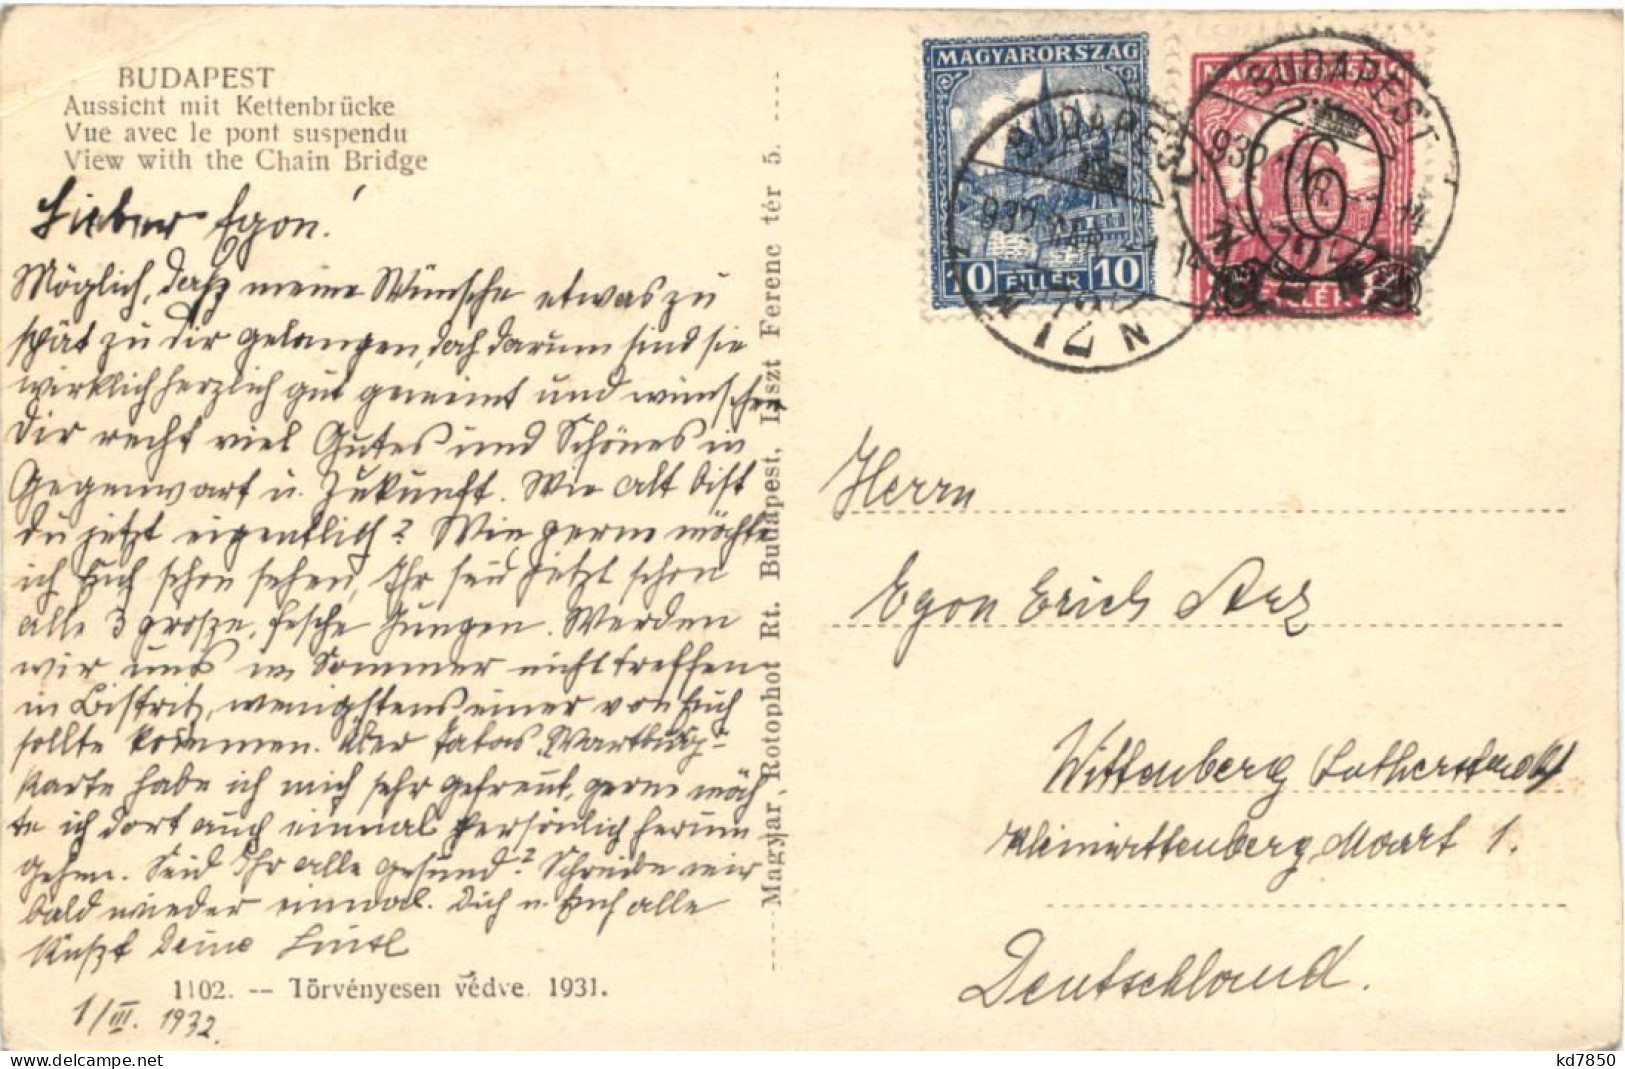 BUDAPEST
Aussicht mit Kettenbrücke
Vue avec le pont suspendu
View with the Chain Bridge
Lieber Egon!
Möglich, daß meine Wünsche etwas zu
spät zu dir gelangen, doch darum sind sie
wirklich herzlich gut gemeint und wünschen
Dir recht viel Gutes und Schönes in
Gegenwart u. Zukunft. Wie alt bist
du jetzt eigentlich? Wie gerne möchte
ich Euch schon sehen, Ihr seid jetzt schon
alle 3 grosze, fesche Jungen. Werden
wir uns im Sommer nicht treffen
in Bistritz, wenigstens einer von Euch
sollte kommen. Über Wartburg-
karte habe ich mich sehr gefreut, gerne möch
te ich dort auch einmal persönlich herum
gehen. Seid Ihr alle gesund? Schreibe mir
bald wieder einmal. Dich u. Euch alle
Küszt Deine
1102. -- Törvényesen védve. 1931.
1/III. 1932.
Magyar Rotophot Rt. Budapest, Liszt Ferenc tér 5.
MAGYARORSZÁG
10 FILLÉR 10
BUDAPEST
932 MÁR -1 14
72
N
MAGYARORSZÁG
6
FILLÉR
BUDAPEST
932 MÁR. -1 14
72
N
Herrn
Egon Erich Arz
Wittenberg Lutherstadt
Kleinwittenberg, Markt 1.
Deutschland.
kd7850